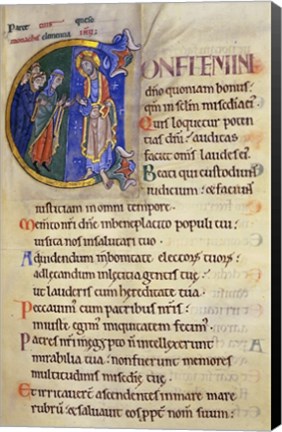 Parce tuis queso
monachis clementia ihu
CONFITEMINI
dño quoniam bonus:
qm̄ in sclm̄ misedia ei'
Quis loquetur poten
tias dñi: auditas
faciet om̄s laudes ei'.
Beati qui custodiunt
iudicium: & faciunt
iusticiam in omni tempore.
Memto nr̄i dñe inbeneplacito populi tui:
uisita nos insalutari tuo.
Ad uidendum inbonitate electorȝ tuorȝ:
adletandum inleticia gentis tue
ut lauderis cum hereditate tua.
Peccauim' cum patribus nr̄is:
iniuste egim' iniquitatem fecim'.
Patres nr̄i inegypto ñ intellexerunt
mirabilia tua: nonfuerunt memores
multitudinis misc̄die tue.
Et irritauerunt ascendentes inmare mare
rubrū: & saluauit eos ꝓpt̄ nom̄ suum: